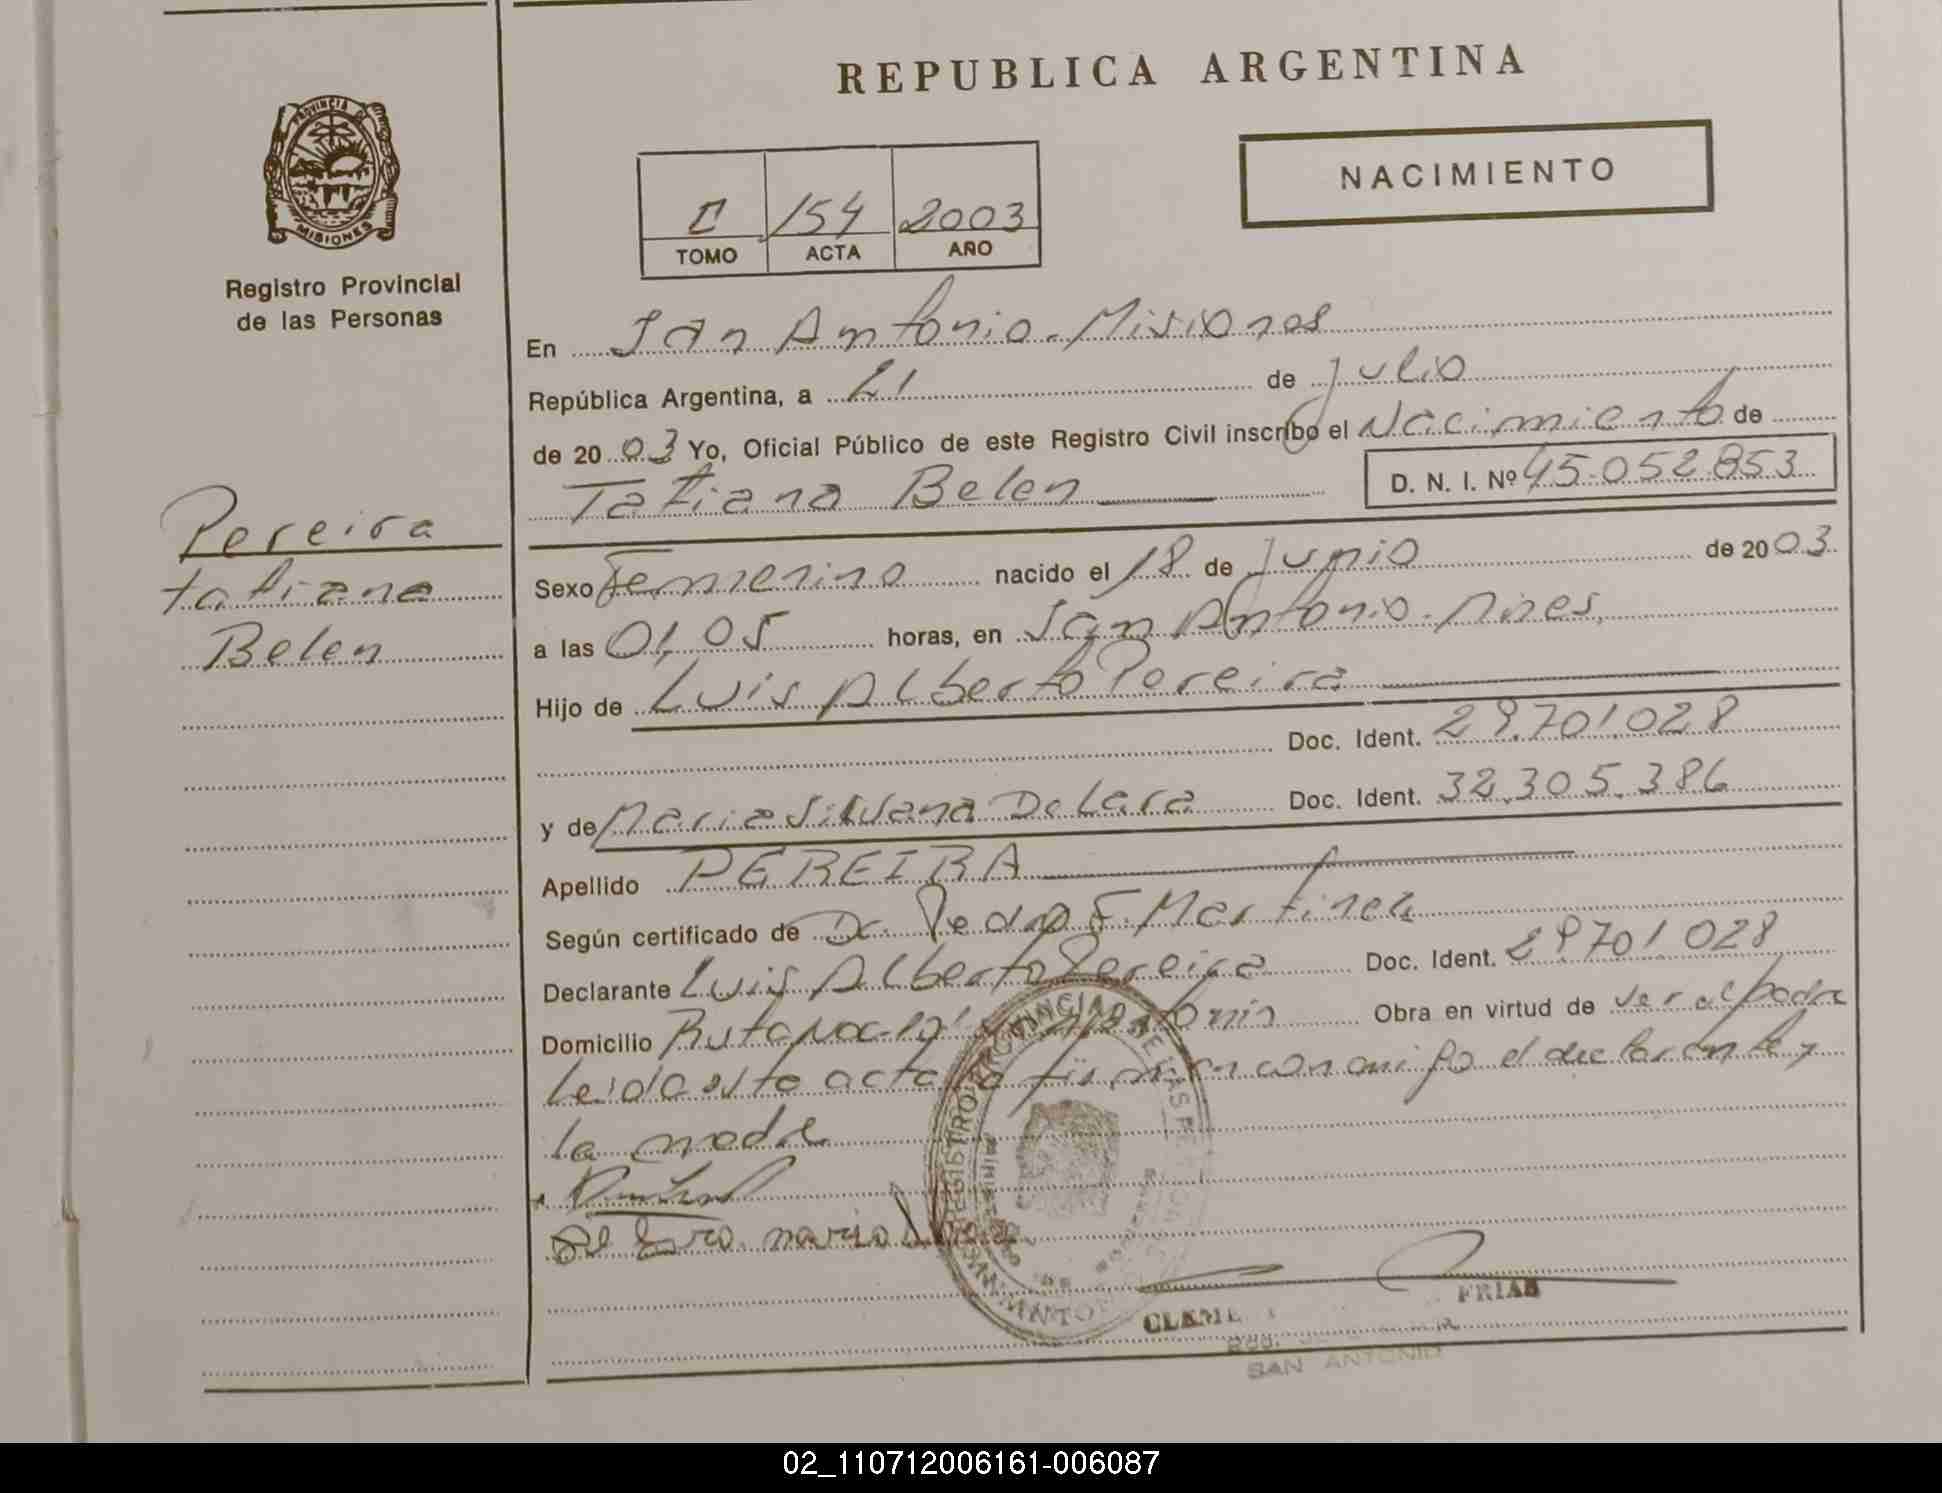 REPUBLICA ARGENTINA
NACIMIENTO
PROVINCIA DE
MISIONES
Registro Provincial
de las Personas
154 2003
TOMO ACTA AÑO
En San Antonio - Misiones
República Argentina, a 21 de Julio
de 2003 Yo, Oficial Público de este Registro Civil inscribo el Nacimiento de
Tatiana Belen D. N. I. Nº 45.052.853
Pereira
tatiana
Belen
Sexo Femenino nacido el 18 de Junio de 2003
a las 01,05 horas, en San Antonio. Mnes,
Hijo de Luis Alberto Pereira
Doc. Ident. 29.701.028
y de Maria Silvana De Lara Doc. Ident. 32.305.386
Apellido PEREIRA
Según certificado de Dr. Pedro F. Martinez
Declarante Luis Alberto Pereira Doc. Ident. 29701028
Domicilio Ruta Nac. Antonio Obra en virtud de ser el padre
leida esta acta la firman conmigo el declarante y
la madre
maria
FRIAS
SAN ANTONIO
02_110712006161-006087